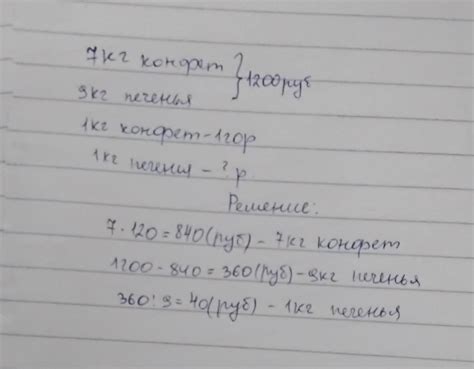 7кг конфет } 1200руб
9кг печенья
1кг конфет-120р
1кг печения - ? р.
Решение:
7 · 120 = 840(руб) - 7кг конфет
1200 - 840 = 360(руб) - 9кг печенья
360 : 9 = 40(руб) - 1кг печенья